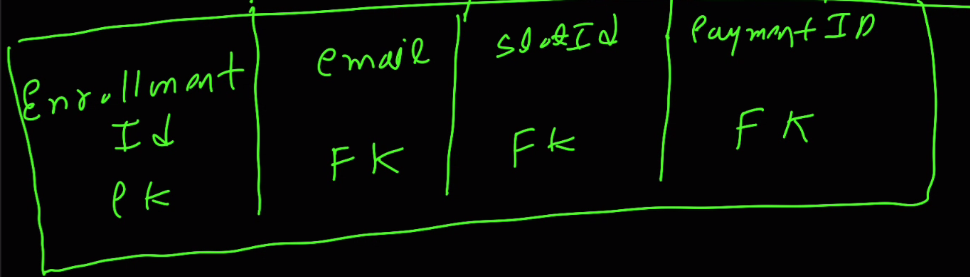 Enrollment
Id
PK
email
FK
slotId
FK
Payment ID
FK